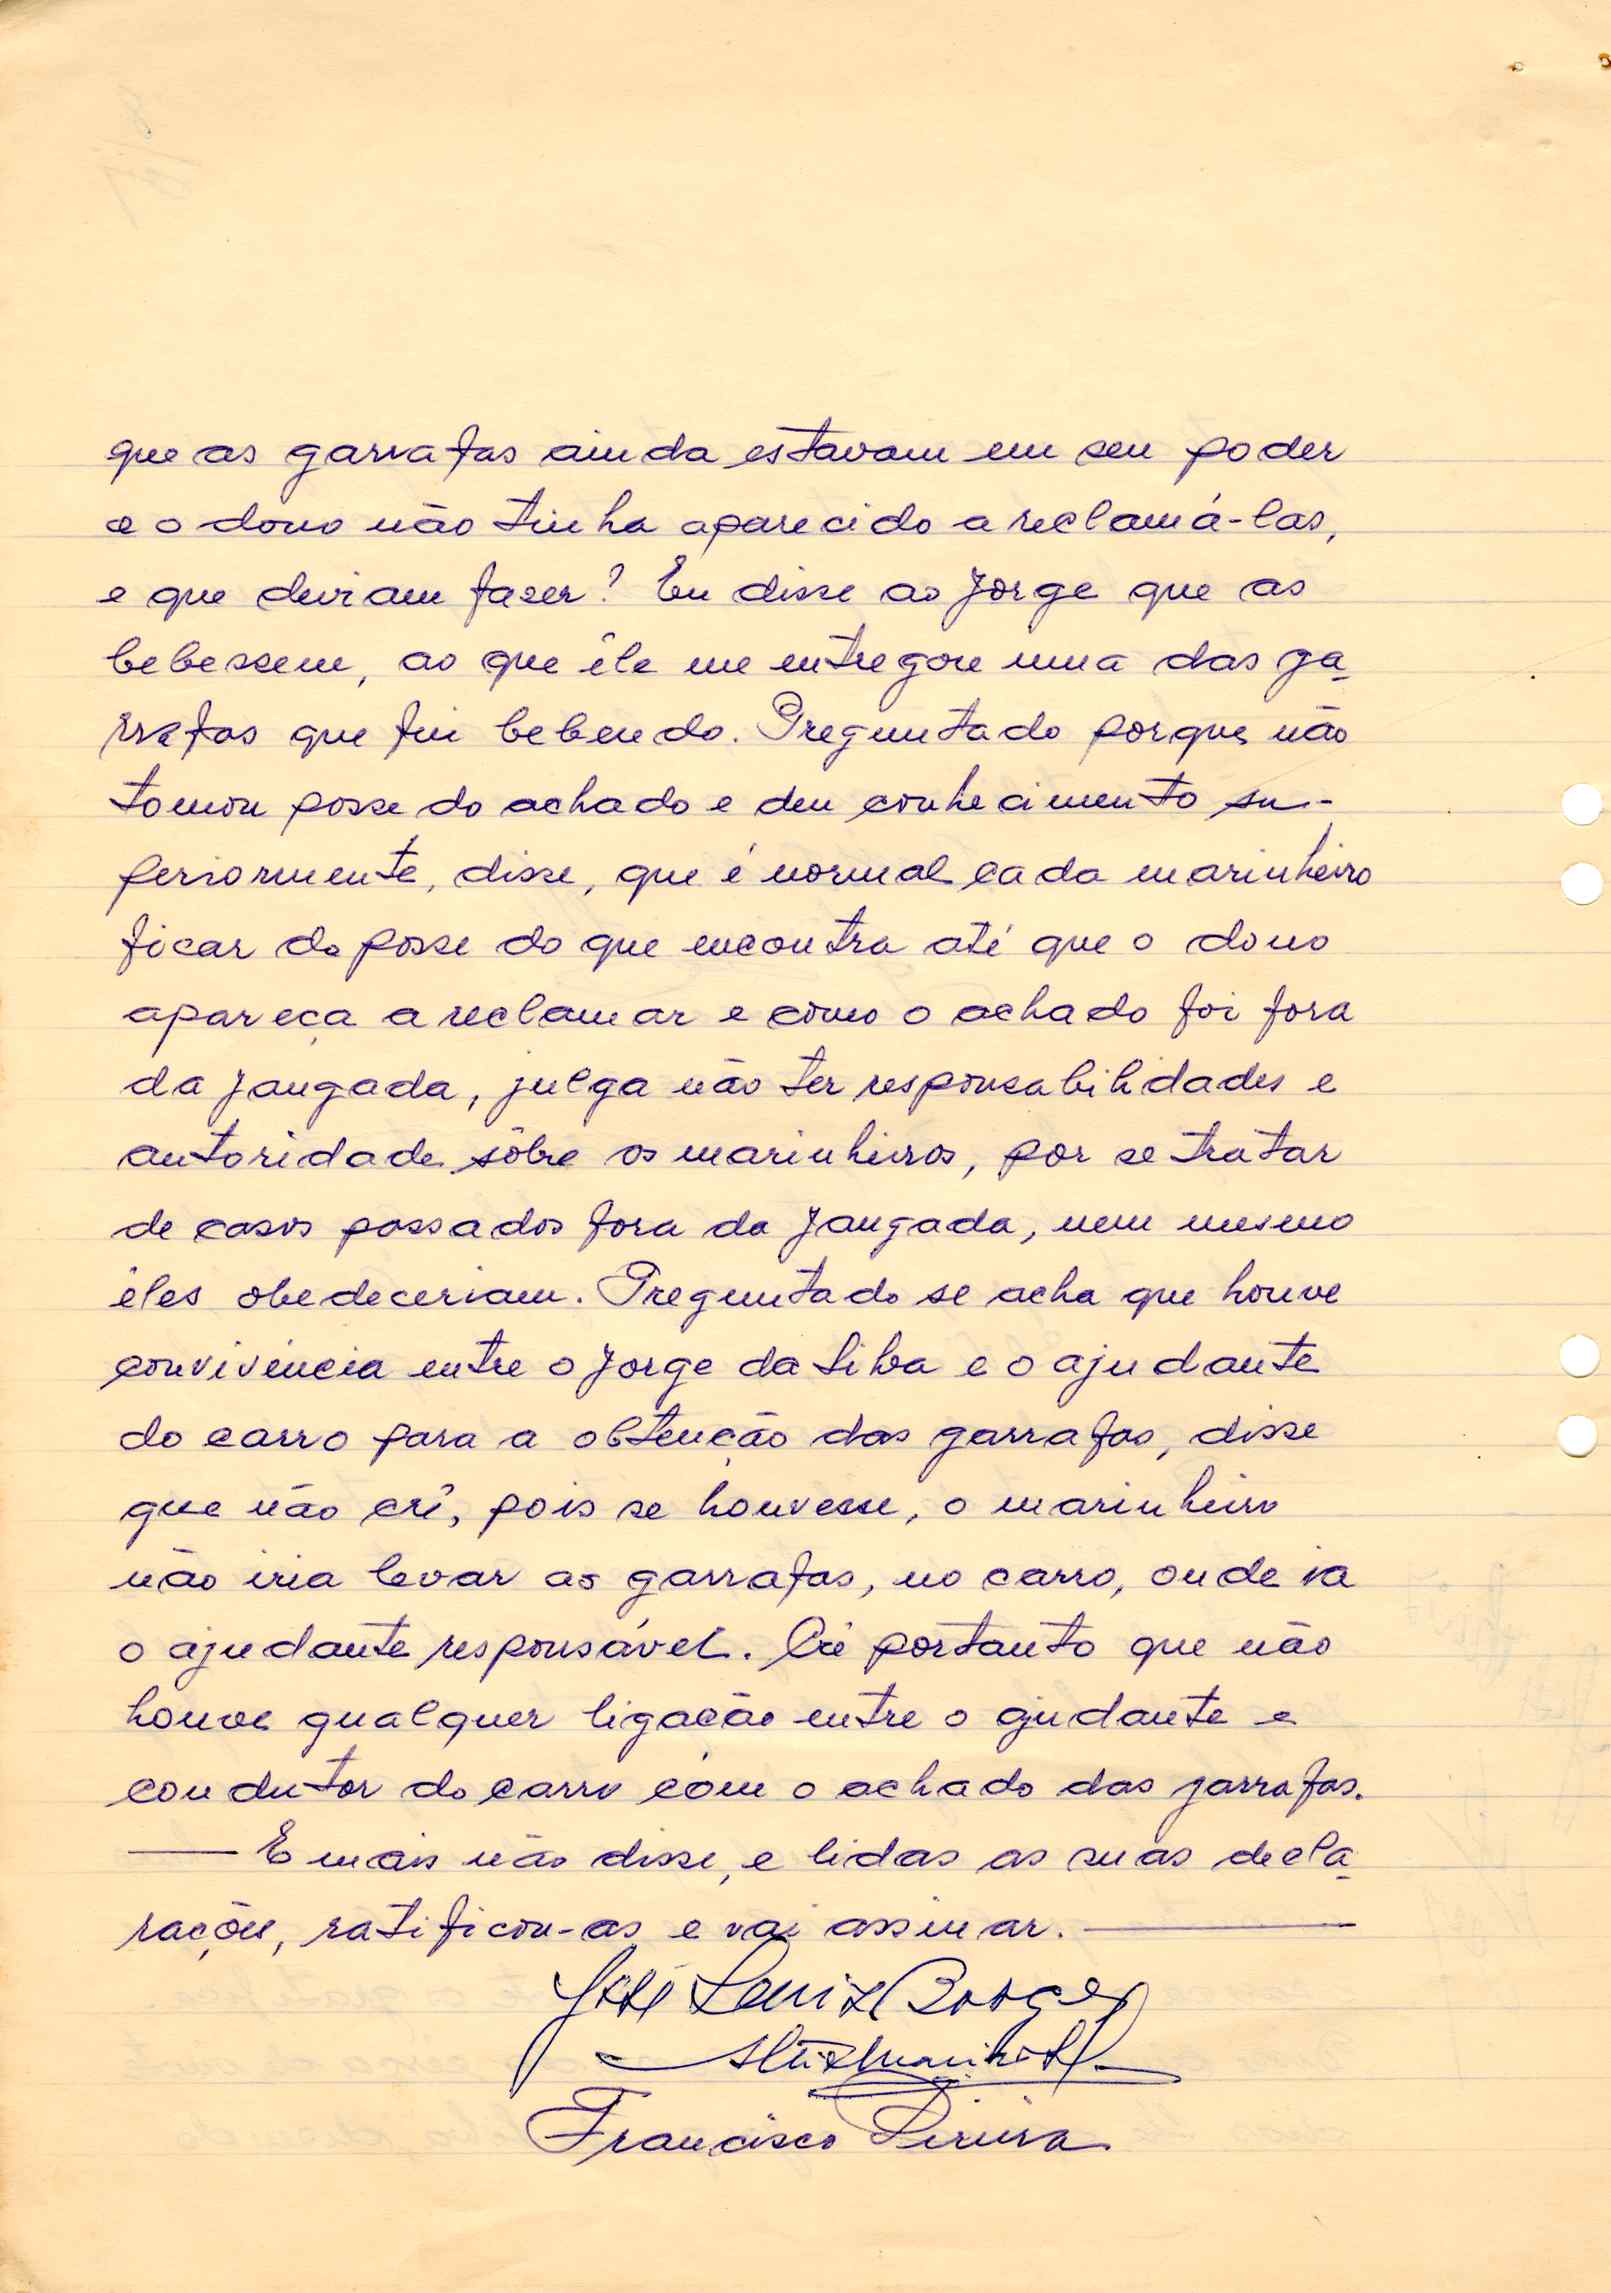 que as garrafas ainda estavam em seu poder
e o dono não tinha aparecido a reclamá-las,
e que deviam fazer? Eu disse ao Jorge que as
bebessem, ao que êle me entregou uma das ga-
rrafas que fui bebendo. Preguntado porque não
tomou posse do achado e deu conhecimento su-
periormente, disse, que é normal cada marinheiro
ficar de posse do que encontra até que o dono
apareça a reclamar e como o achado foi fora
da Jangada, julga não ter responsabilidades e
autoridade sôbre os marinheiros, por se tratar
de casos passados fora da Jangada, nem mesmo
êles obedeceriam. Preguntado se acha que houve
convivência entre o Jorge da Silva e o ajudante
do carro para a obtenção das garrafas, disse
que não crê, pois se houvesse, o marinheiro
não iria levar as garrafas, no carro, onde ia
o ajudante responsável. Crê portanto que não
houve qualquer ligação entre o ajudante e
condutor do carro com o achado das garrafas.
E mais não disse, e lidas as suas decla-
rações, ratificou-as e vai assinar.
José Luiz Borges
Francisco Pereira